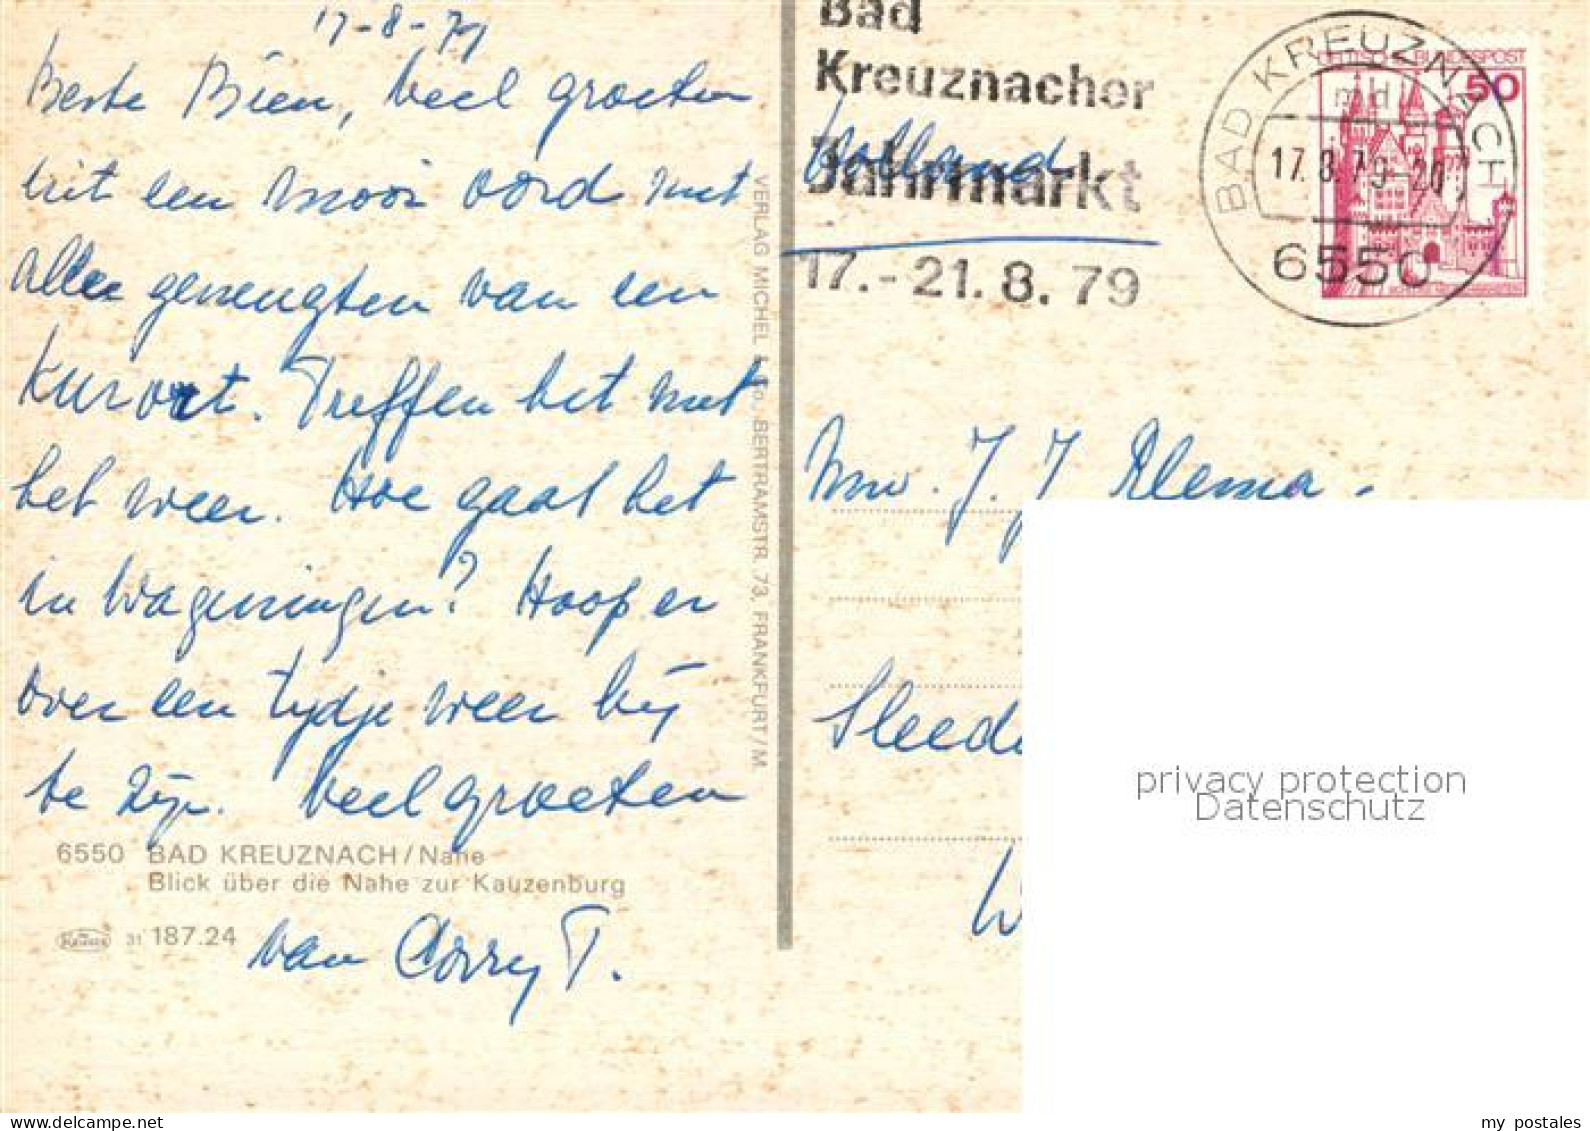 17-8-79
Beste Bien, veel groeten
uit een mooi oord met
alle geneugten van een
Kuroort. Treffen het met
het weer. Hoe gaat het
in Wageningen? Hoop er
over een tydje weer bij
te zijn. Veel groeten
6550 BAD KREUZNACH/Nahe
Blick über die Nahe zur Kauzenburg
31 187.24
van Corry T.
VERLAG MICHEL & Co., BERTRAMSTR. 73, FRANKFURT/M.
Bad
Kreuznacher
Jahrmarkt
17.-21.8.79
Holland
BAD KREUZNACH
md
17.8.79-20
6550
DEUTSCHE BUNDESPOST
50
Mw. J. J. Elema-
Sleed
W
privacy protection
Datenschutz
my postales